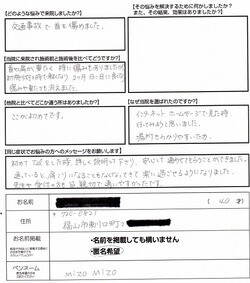 【どのような悩みで来院しましたか】
交通事故で首を痛めました。
【その悩みを解決する為に何かしましたか？
また、その結果、効果はありましたか】
【当院に来院され施術前と後を比べてどうですか？】
首や肩が重たく 時に痛みもありましたが
初めて
痛みや重だるさ消えました。
【他院と比べてどこか違う所はありましたか】
ここが初めてです。
【なぜ当院を選ばれたのですか】
インターネット ホームページで見た時
行ってみようと思いました。
場所もわかりやすいため。
【同じ症状でお悩みの方へのメッセージをお願いします】
初めて 電話をした時、詳しく説明して下さり、安心して通院することができました。
通っていると、肩こりになることもなくなってきて、楽に過ごせるようになりました。
先生や受付の方も皆親切で、通いやすかったです。
お名前
(40才)
住所
〒720-0821
福山市東川口町
お名前掲載
・名前を掲載しても構いません
・匿名希望
ペンネーム
MIZO MIZO